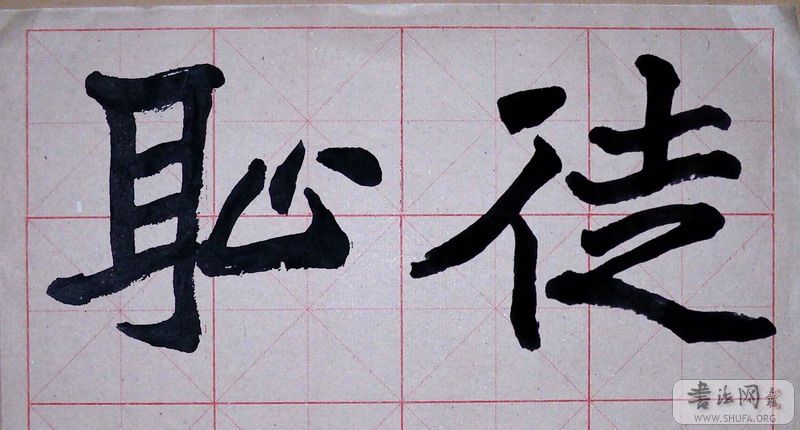 恥徒
書法网
WWW.SHUFA.ORG